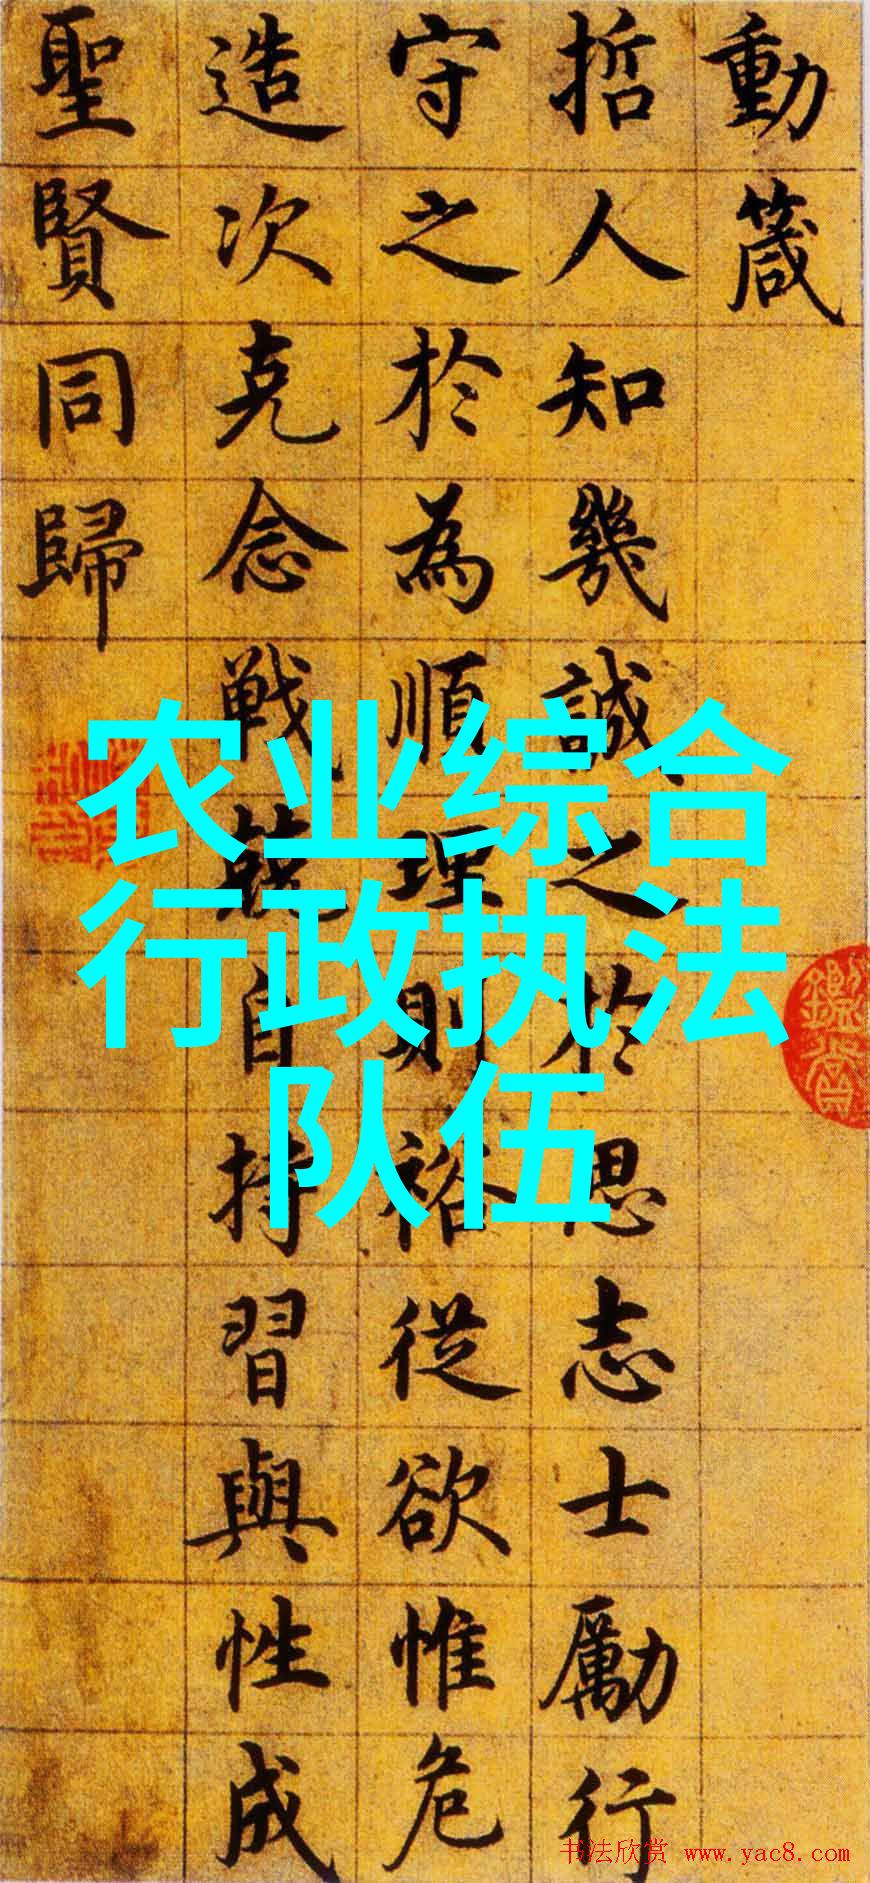 動箴
哲人知幾誠之於思志士勵行
守之於為順理則裕從欲惟危
造次克念戰兢自持習與性成
聖賢同歸
农业综合
行政执法
队伍
书法欣赏 www.yac8.com